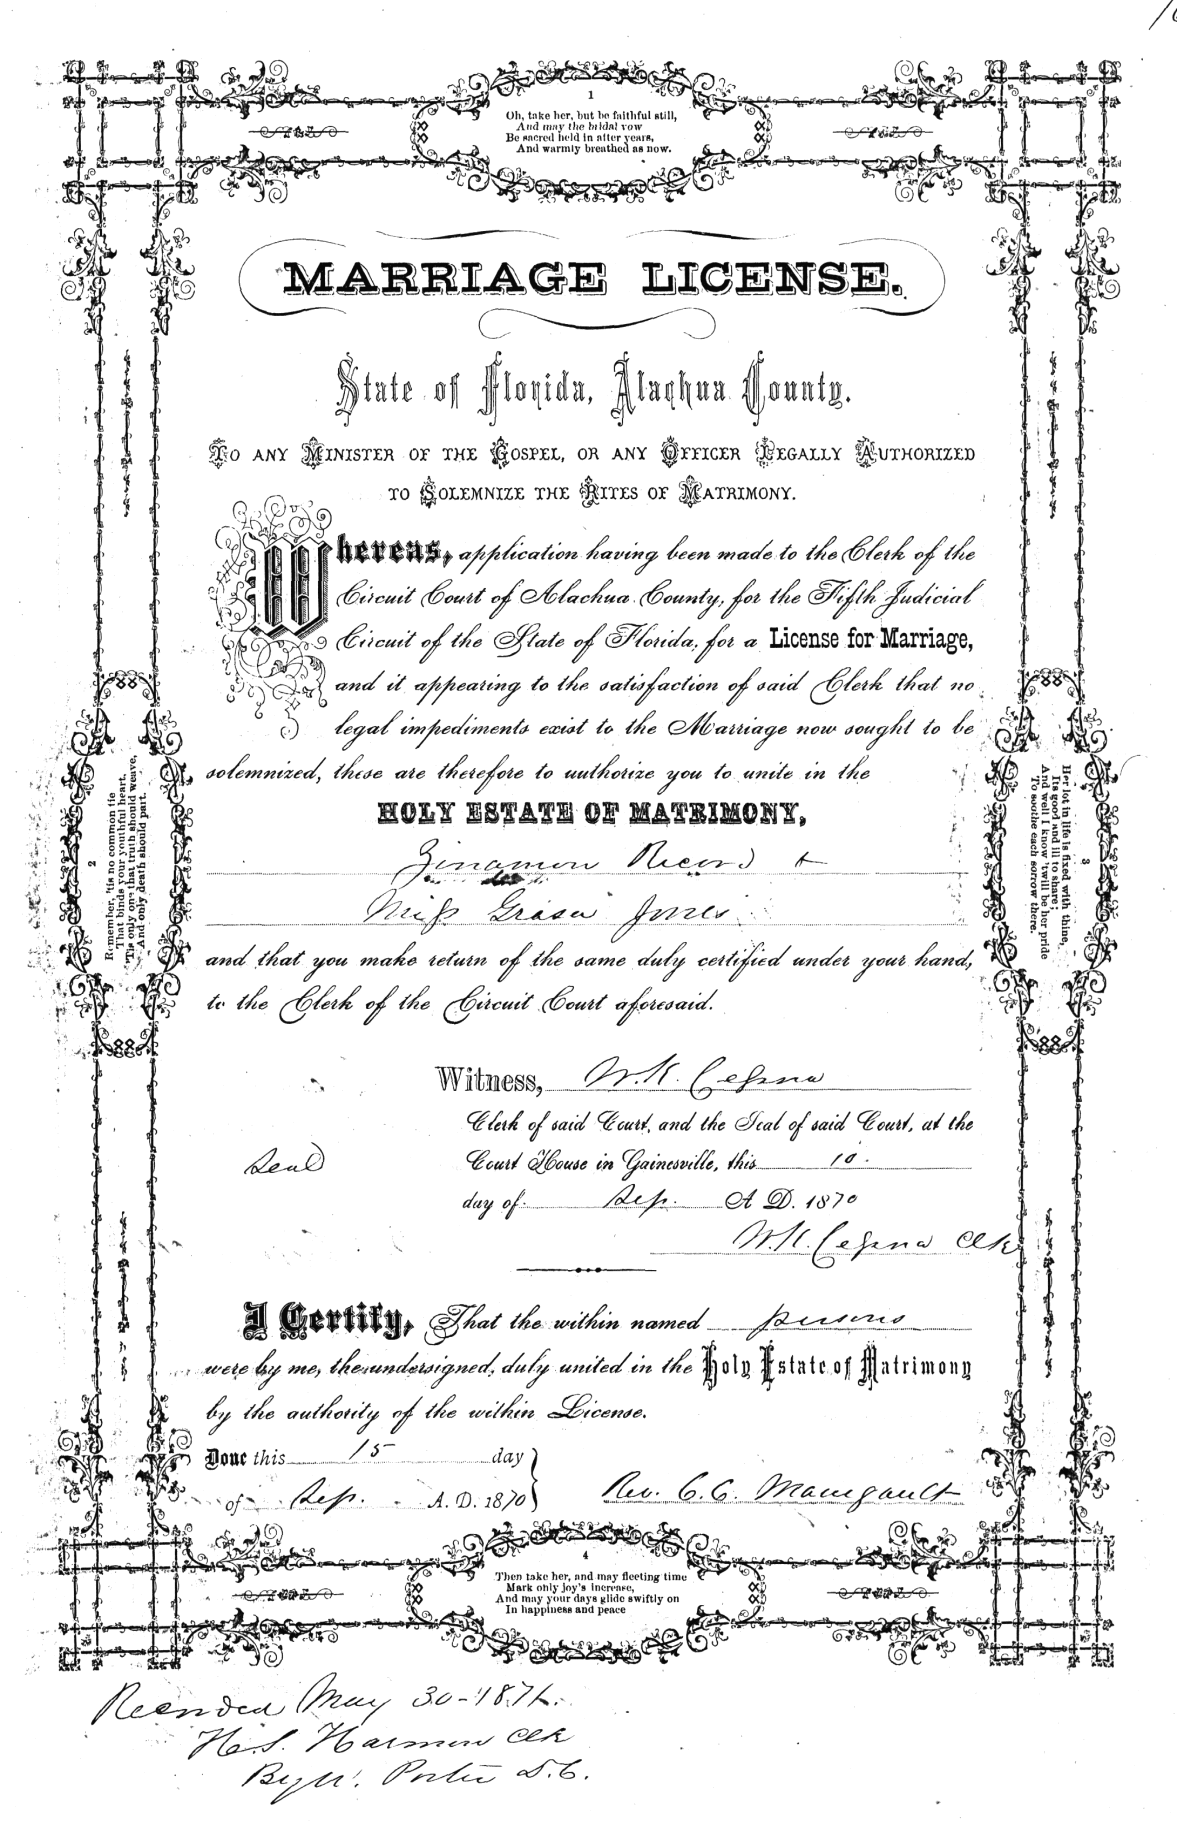 1
Oh, take her, but be faithful still,
And may the bridal vow
Be sacred held in after years,
And warmly breathed as now.
MARRIAGE LICENSE.
State of Florida, Alachua County.
TO ANY MINISTER OF THE GOSPEL, OR ANY OFFICER LEGALLY AUTHORIZED
TO SOLEMNIZE THE RITES OF MATRIMONY.
Whereas, application having been made to the Clerk of the
Circuit Court of Alachua County, for the Fifth Judicial
Circuit of the State of Florida, for a License for Marriage,
and it appearing to the satisfaction of said Clerk that no
legal impediments exist to the Marriage now sought to be
solemnized, these are therefore to authorize you to unite in the
HOLY ESTATE OF MATRIMONY,
Zinamon Record &
Miss Jones
and that you make return of the same duly certified under your hand,
to the Clerk of the Circuit Court aforesaid.
Witness, W.K. Cessna
Clerk of said Court, and the Seal of said Court, at the
Seal
Court House in Gainesville, this 10.
day of Sep. A D. 1870
W.K. Cessna Clk
I Certify, That the within named persons
were by me, the undersigned, duly united in the Holy Estate of Matrimony
by the authority of the within License.
Done this 15 day
of Sep. A. D. 1870
Rev. C. C.
2
Remember, 'tis no common tie
That binds your youthful heart,
'Tis only one that truth should weave,
And only death should part.
3
Her lot in life is fixed with thine,
Its good and ill to share;
And well I know 'twill be her pride
To soothe each sorrow there.
4
Then take her, and may fleeting time
Mark only joy's increase,
And may your days glide swiftly on
In happiness and peace
Recorded May 30-1871.
H.S. Harmon Clk
By W. Porter D.C.